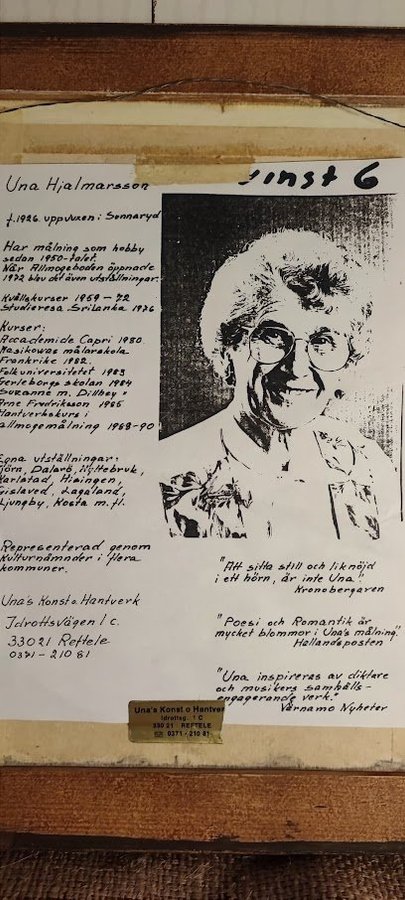 vinst 6
Una Hjalmarsson
f. 1926. uppvuxen: Sonnaryd
Har målning som hobby
sedan 1950-talet.
När Allmogeboden öppnade
1972 blev det även utställningar.
Kvällskurser 1959 - 72
Studieresa SriLanka 1976
Kurser:
Accademide Capri 1980.
Masikowas målarskola
Frankrike 1982.
Folkuniversitetet 1983
Gerleborgs skolan 1984
Suzanne m. Dillhey "
Arne Fredriksson 1985
Hantverkskurs i
allmogemålning 1989-90
Egna utställningar:
Tjörn, Dalarö, Hyltebruk,
Karlstad, Hisingen,
Gislaved, Lagaland,
Ljungby, Kosta m.fl.
Representerad genom
Kulturnämnder i flera
kommuner.
Una's Konst o. Hantverk
Idrottsvägen 1 c.
33021 Reftele
0371-210 81
"Att sitta still och liknöjd
i ett hörn, är inte Una."
Kronobergaren
"Poesi och Romantik är
mycket blommor i Una's målning"
Hallandsposten
"Una inspireras av diktare
och musikers samhälls-
engagerande verk."
Värnamo Nyheter
Una's Konst o Hantver
Idrottsg. 1 C
330 21 REFTELE
0371 - 210 81